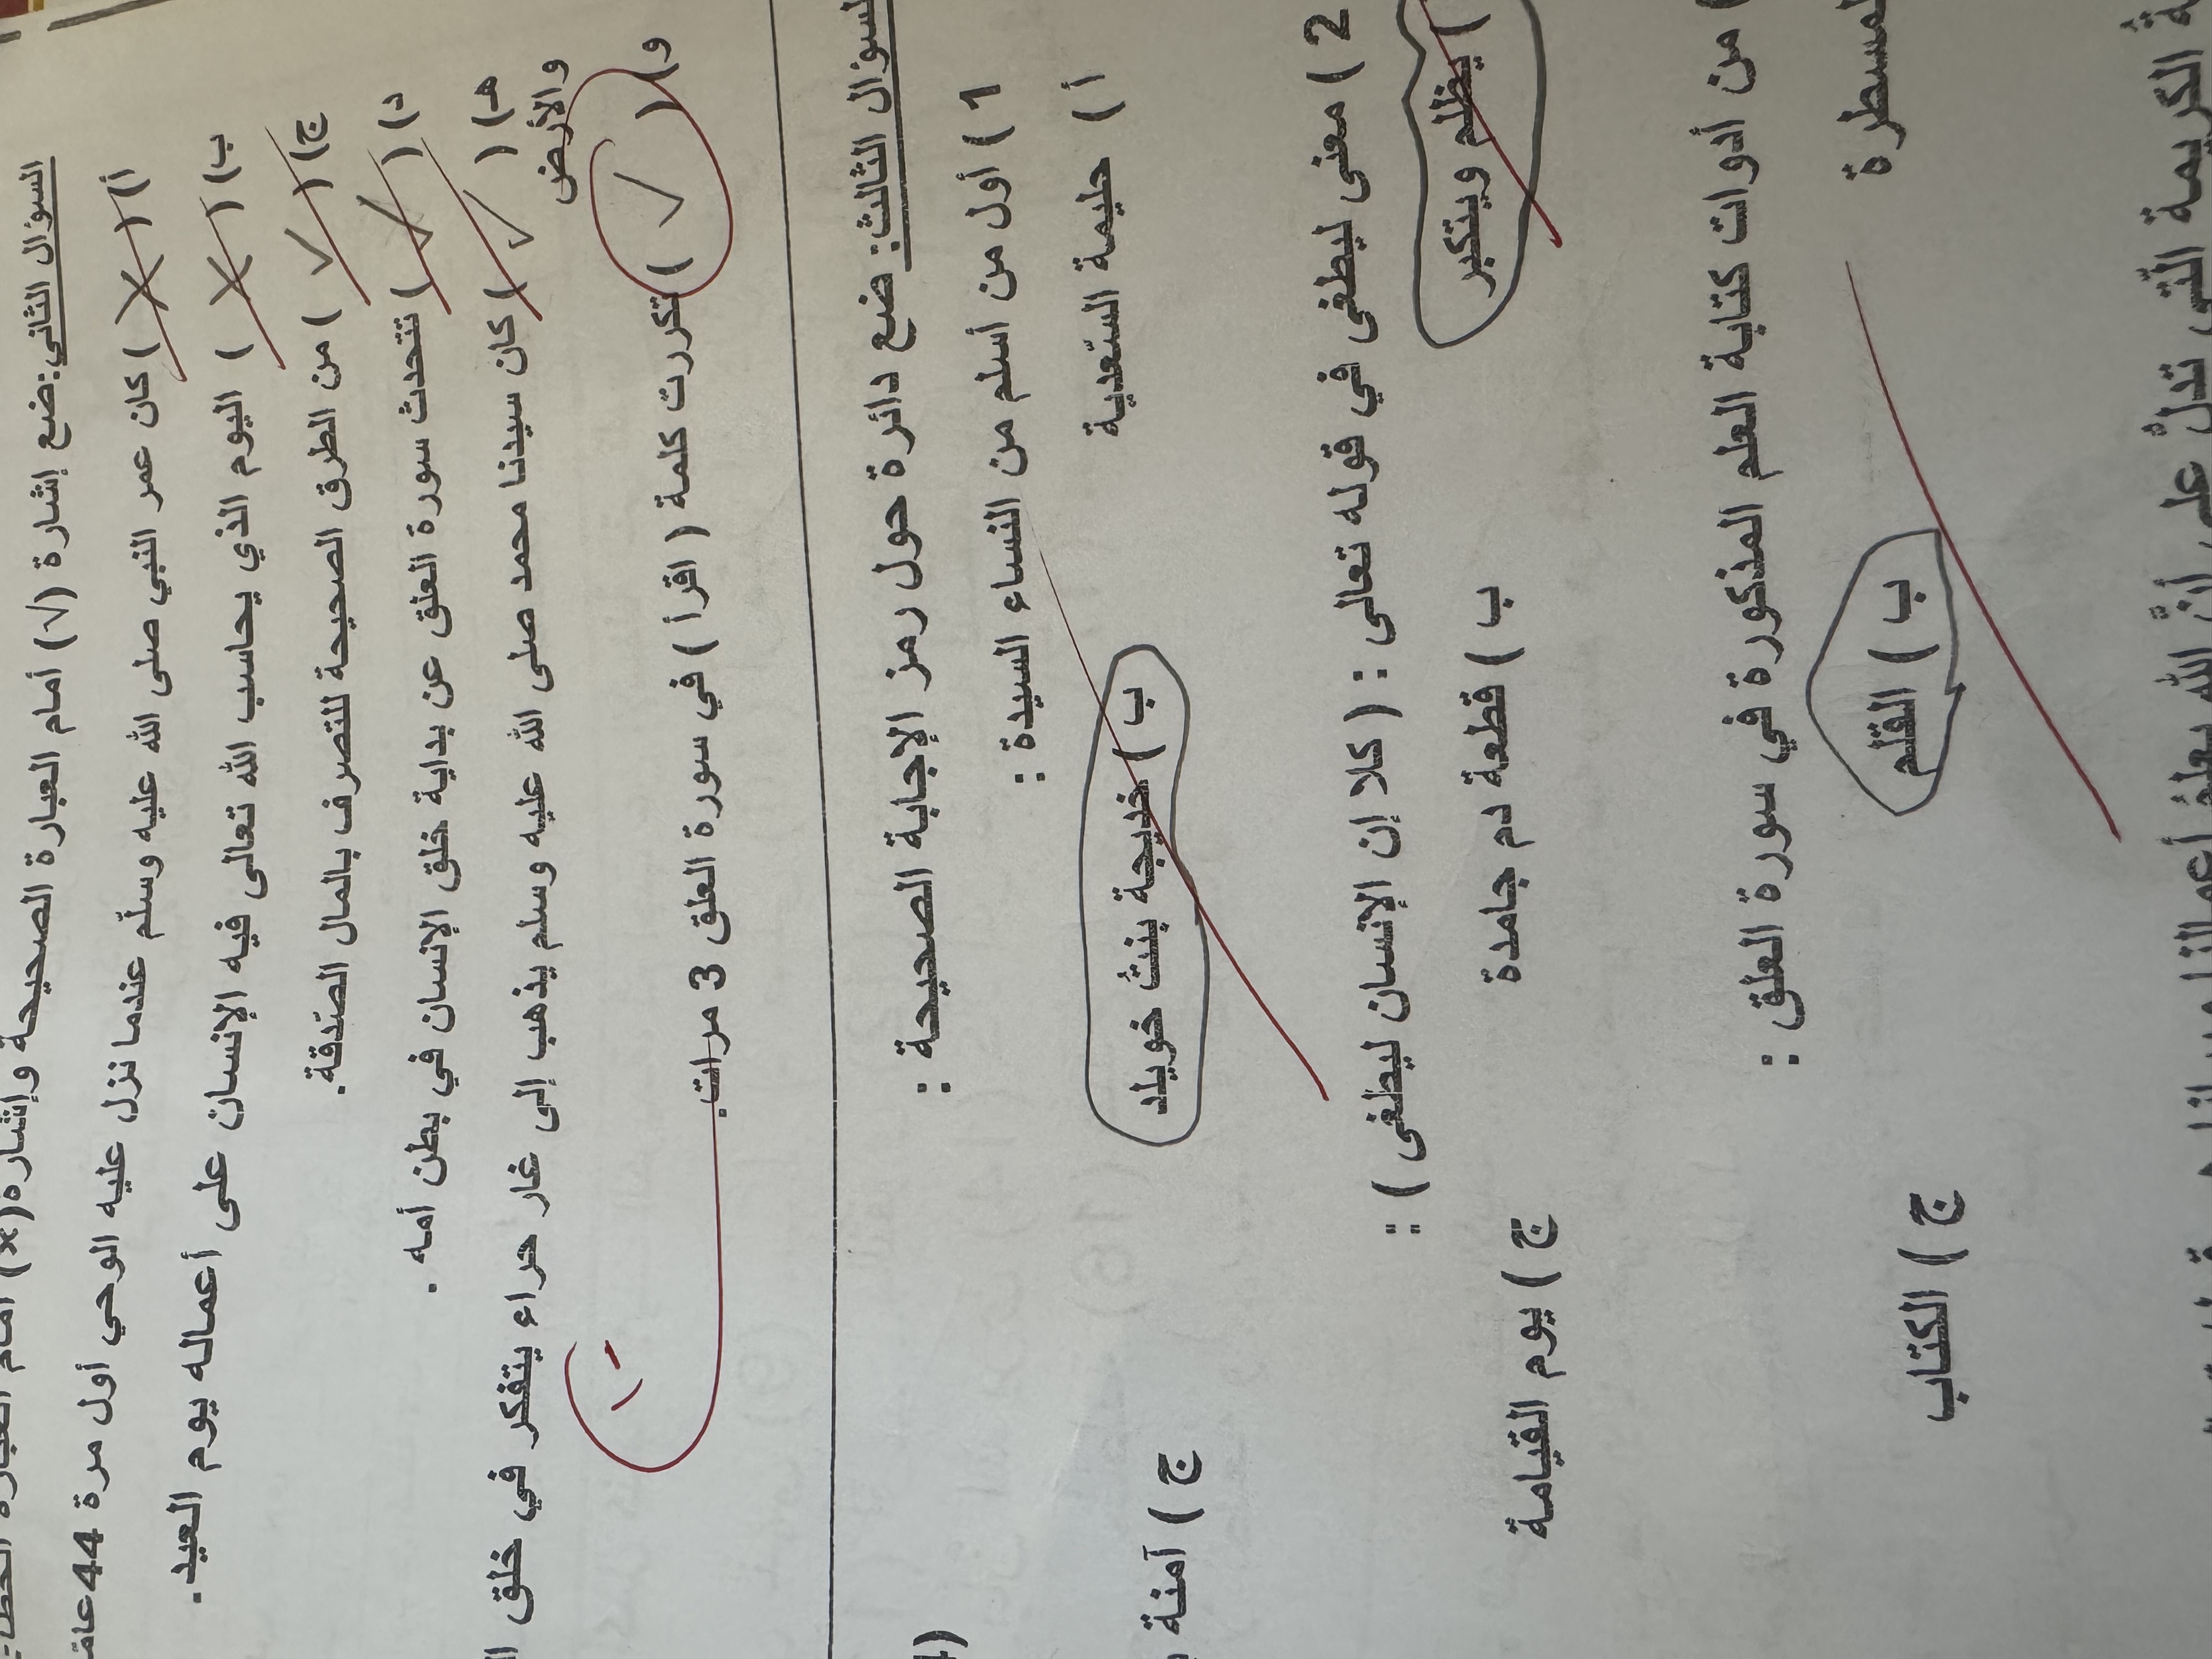 السؤال الثاني: ضع إشارة (√) أمام العبارة الصحيحة وإشارة (×) أمام العبارة
أ) ( X ) كان عمر النبي صلى الله عليه وسلّم عندما نزل عليه الوحي أول مرة 44 عامًا
ب) ( X ) اليوم الذي يحاسب الله تعالى فيه الإنسان على أعماله يوم العيد.
ج) ( √ ) من الطرق الصحيحة للتصرف بالمال الصّدقة.
د) ( √ ) تتحدث سورة العلق عن بداية خلق الإنسان في بطن أمه .
هـ) ( √ ) كان سيدنا محمد صلى الله عليه وسلم يذهب إلى غار حراء يتفكر في خلق
والأرض
و) ( √ ) تكررت كلمة ( اقرأ ) في سورة العلق 3 مرات
١-
السؤال الثالث: ضع دائرة حول رمز الإجابة الصحيحة :
1 ) أول من أسلم من النساء السيدة :
أ ) حليمة السّعدية ب ) خديجة بنتُ خويلد ج ) آمنة
2 ) معنى ليطغى في قوله تعالى : ( كلا إن الإنسان ليطغى ) :
) يظلم ويتكبر ب ) قطعة دم جامدة ج ) يوم القيامة
) من أدوات كتابة العلم المذكورة في سورة العلق :
ب ) القلم ج ) الكتاب
الكريمة التّي تدلُّ على أنَّ الله يعلمُ